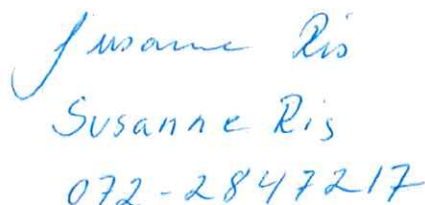 Susanne Ris
Susanne Ris
072-2847217